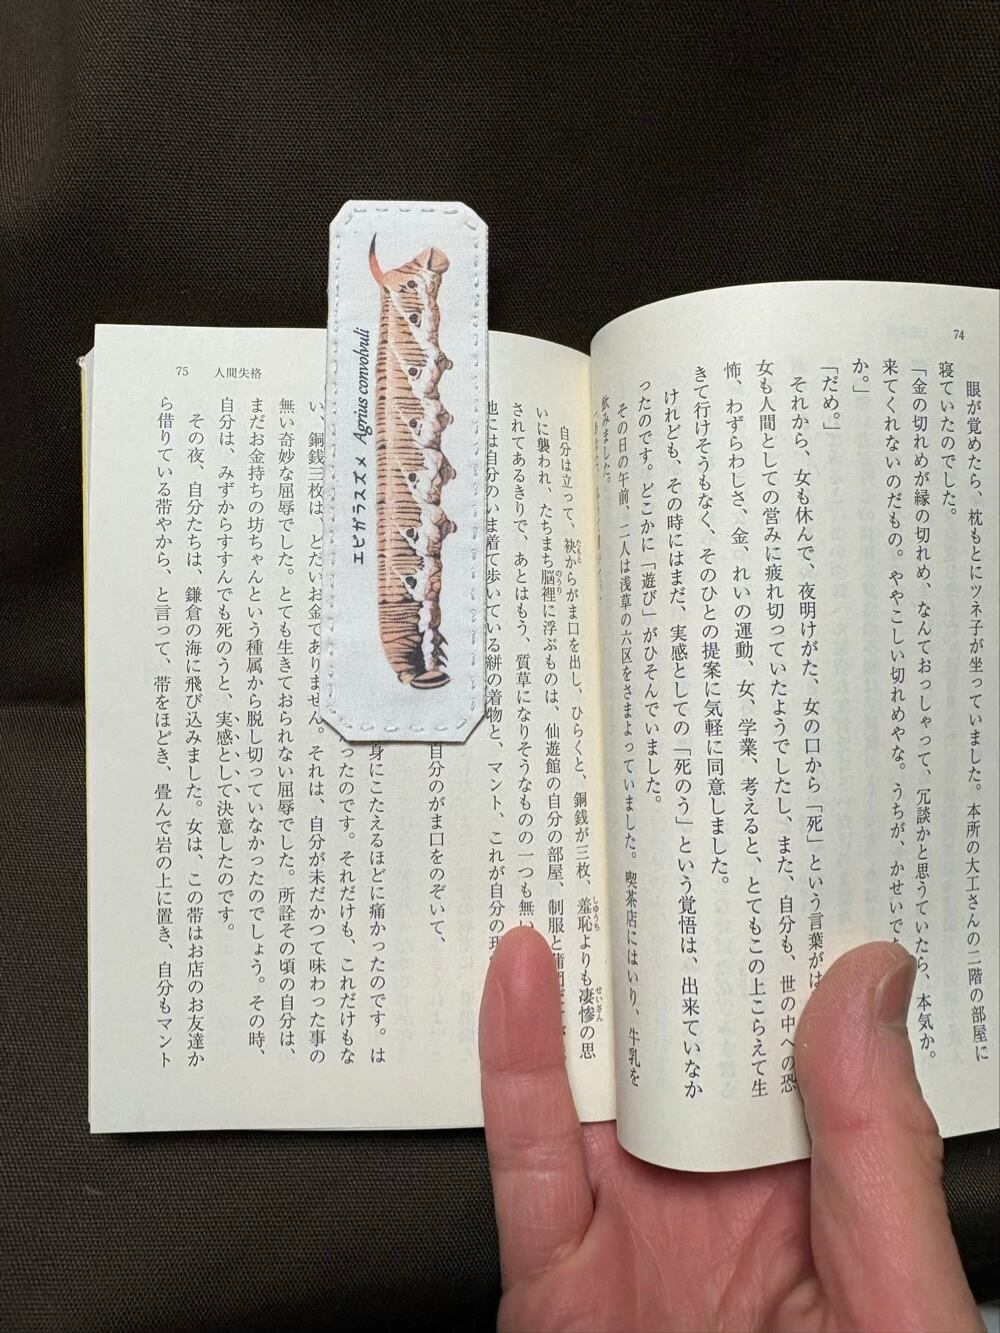 74
眼が覚めたら、枕もとにツネ子が坐っていました。本所の大工さんの二階の部屋に
寝ていたのでした。
「金の切れめが縁の切れめ、なんておっしゃって、冗談かと思うていたら、本気か。
来てくれないのだもの。ややこしい切れめやな。うちが、かせいで
か。」
「だめ。」
それから、女も休んで、夜明けがた、女の口から「死」という言葉がは
女も人間としての営みに疲れ切っていたようでしたし、また、自分も、世の中への恐
怖、わずらわしさ、金、れいの運動、女、学業、考えると、とてもこの上こらえて生
きて行けそうもなく、そのひとの提案に気軽に同意しました。
けれども、その時にはまだ、実感としての「死のう」という覚悟は、出来ていなか
ったのです。どこかに「遊び」がひそんでいました。
その日の午前、二人は浅草の六区をさまよっていました。喫茶店にはいり、牛乳を
飲みました。
75 人間失格
自分は立って、袂からがま口を出し、ひらくと、銅銭が三枚、羞恥よりも凄惨の思
たもと しゅうち せいさん
いに襲われ、たちまち脳裡に浮ぶものは、仙遊館の自分の部屋、制服と蒲団だけが
のうり
されてあるきりで、あとはもう、質草になりそうなものの一つも無い
他には自分のいま着て歩いている絣の着物と、マント、これが自分の現
自分のがま口をのぞいて、
身にこたえるほどに痛かったのです。は
ったのです。それだけも、これだけもな
い、銅銭三枚は、どだいお金でありません。それは、自分が未だかつて味わった事の
無い奇妙な屈辱でした。とても生きておられない屈辱でした。所詮その頃の自分は、
まだお金持ちの坊ちゃんという種属から脱し切っていなかったのでしょう。その時、
自分は、みずからすすんでも死のうと、実感として決意したのです。
その夜、自分たちは、鎌倉の海に飛び込みました。女は、この帯はお店のお友達か
ら借りている帯やから、と言って、帯をほどき、畳んで岩の上に置き、自分もマント
エビガラスズメ Agrius convolvuli